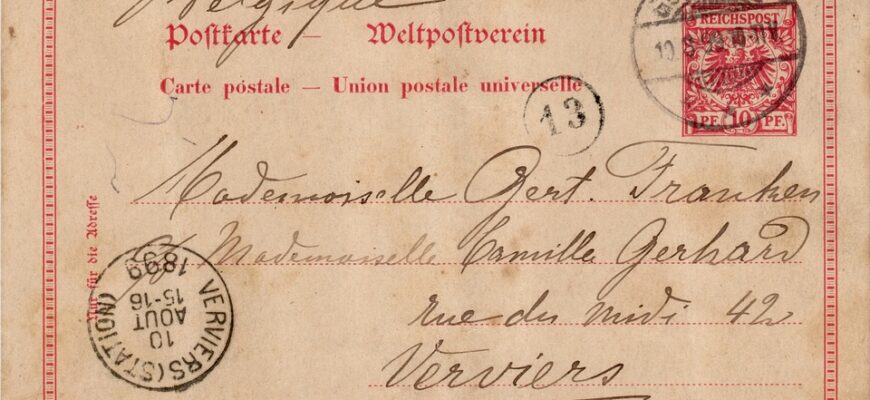 Belgique
Postkarte — Weltpostverein
Carte postale — Union postale universelle
REICHSPOST
PF. 10 PF.
13
Mademoiselle Gert. Franken
Mademoiselle Camille Gerhard
rue du midi 42
Verviers
Nur für die Adresse
VERVIERS (STATION)
10
AOUT
15-16
1899